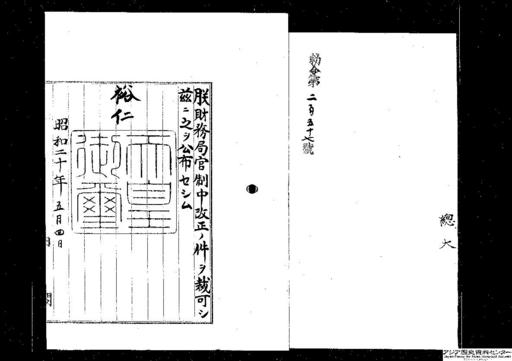 勅令第二百五十七號
總大
朕財務局官制中改正ノ件ヲ裁可シ
茲ニ之ヲ公布セシム
裕仁
天皇御璽
昭和二十年五月四日
内閣
アジア歴史資料センター